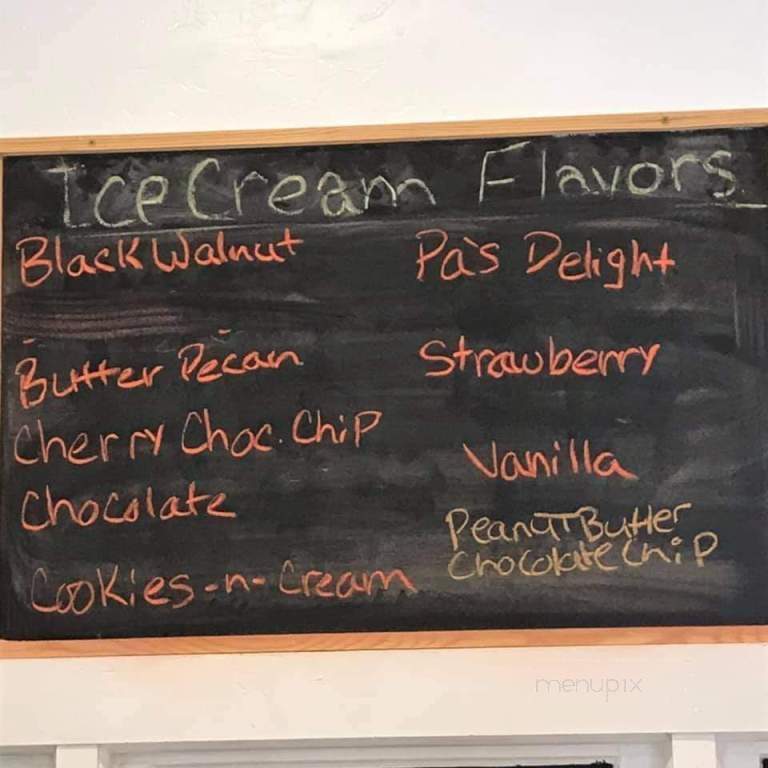 Ice Cream Flavors
Black Walnut
Butter Pecan
Cherry Choc. Chip
Chocolate
Cookies-n-Cream
Pa's Delight
Strawberry
Vanilla
Peanut Butter
Chocolate Chip
menupix